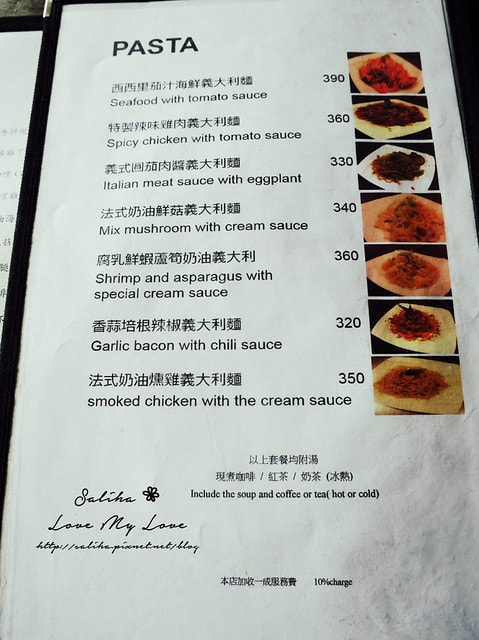 PASTA
西西里茄汁海鮮義大利麵 390
Seafood with tomato sauce
特製辣味雞肉義大利麵 360
Spicy chicken with tomato sauce
義式圓茄肉醬義大利麵 330
Italian meat sauce with eggplant
法式奶油鮮菇義大利麵 340
Mix mushroom with cream sauce
腐乳鮮蝦蘆筍奶油義大利 360
Shrimp and asparagus with
special cream sauce
香蒜培根辣椒義大利麵 320
Garlic bacon with chili sauce
法式奶油燻雞義大利麵 350
smoked chicken with the cream sauce
以上套餐均附湯
現煮咖啡 / 紅茶 / 奶茶 (冰熱)
Include the soup and coffee or tea( hot or cold)
Saliha
Love My Love
http://saliha.pixnet.net/blog
本店加收一成服務費 10%charge